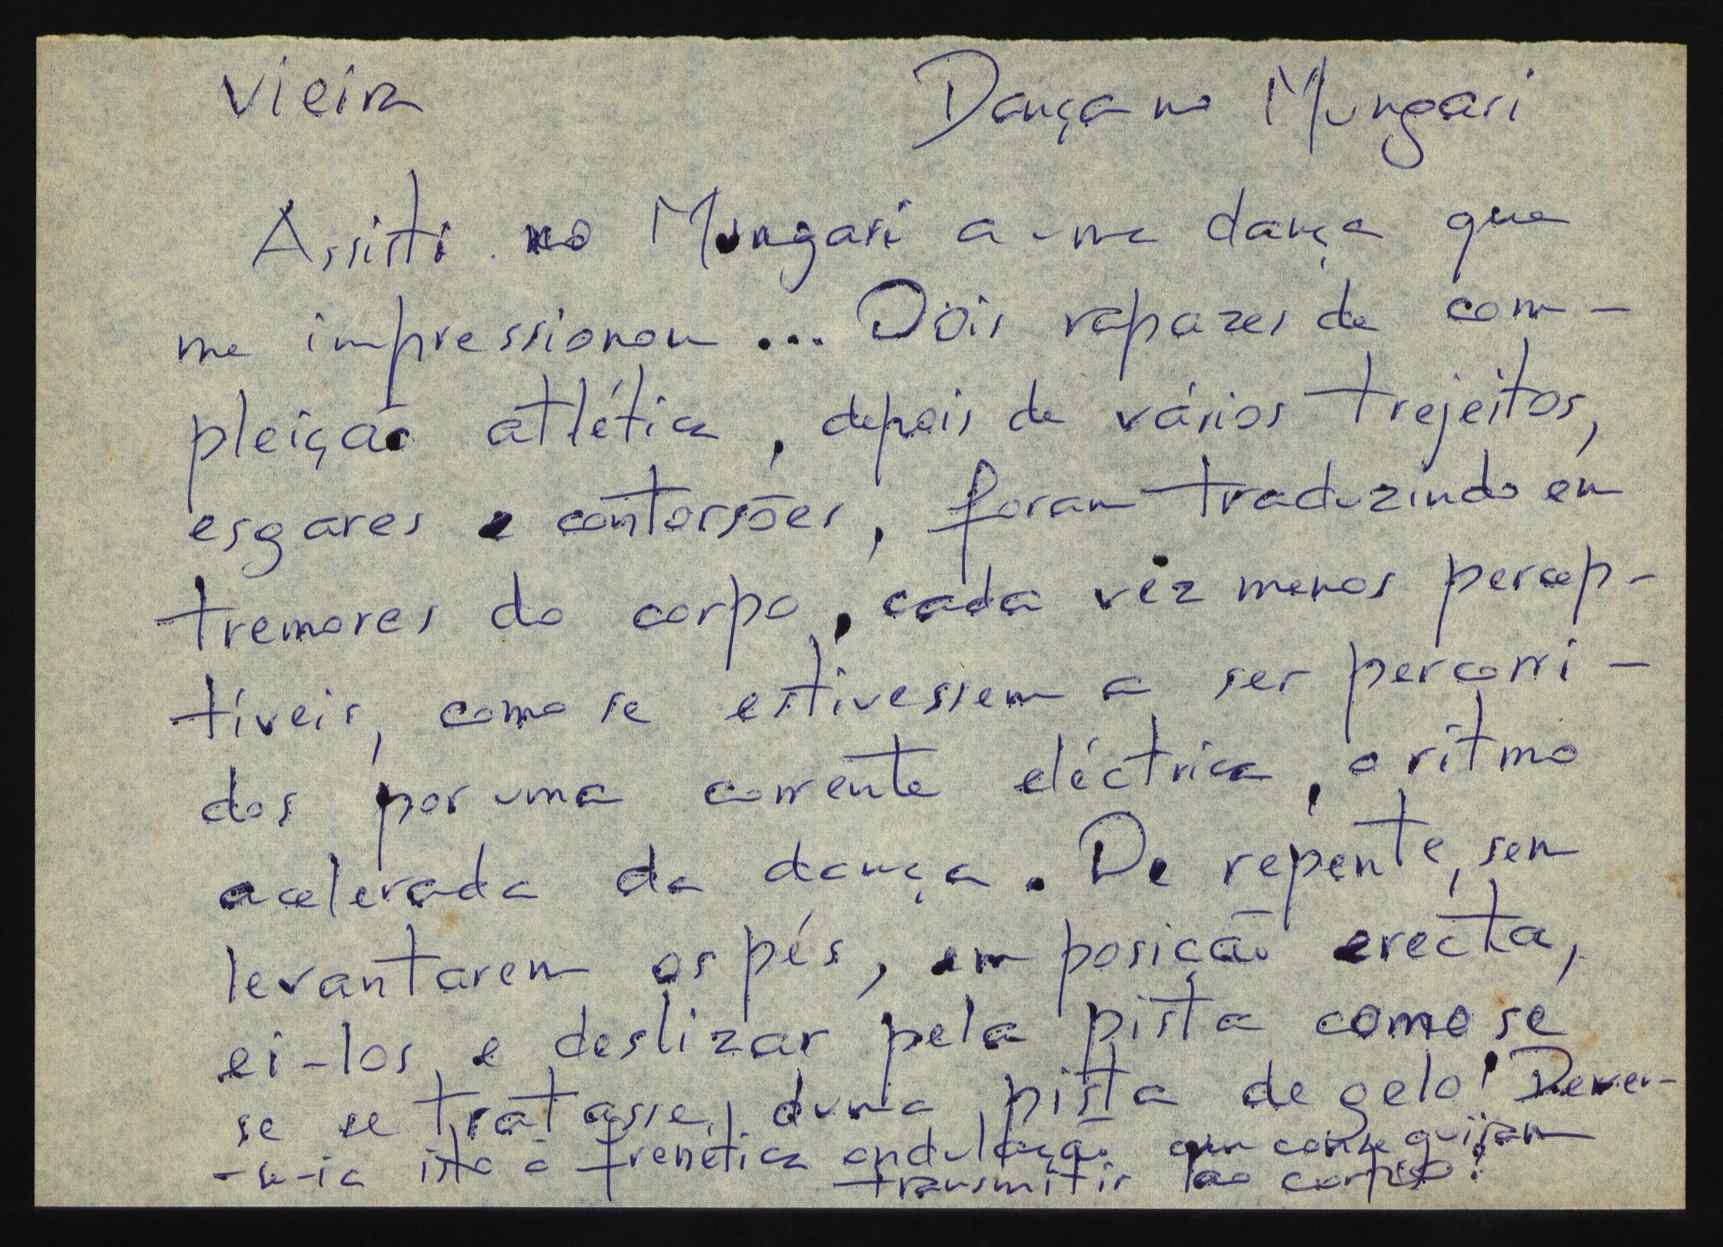 Vieira Dança no Mungari
Assisti no Mungari a uma dança que
me impressionou... Dois rapazes de com-
pleição atlética, depois de vários trejeitos,
esgares e contorsões, foram traduzindo em
tremores do corpo, cada vez menos percep-
tíveis, como se estivessem a ser percorri-
dos por uma corrente eléctrica, o ritmo
acelerada da dança. De repente, sem
levantarem os pés, em posição erecta,
ei-los a deslizar pela pista como se
se se tratasse, duma pista de gelo! Dever-
-se-ia isto à frenética ondulação que conseguiram
transmitir ao corpo?